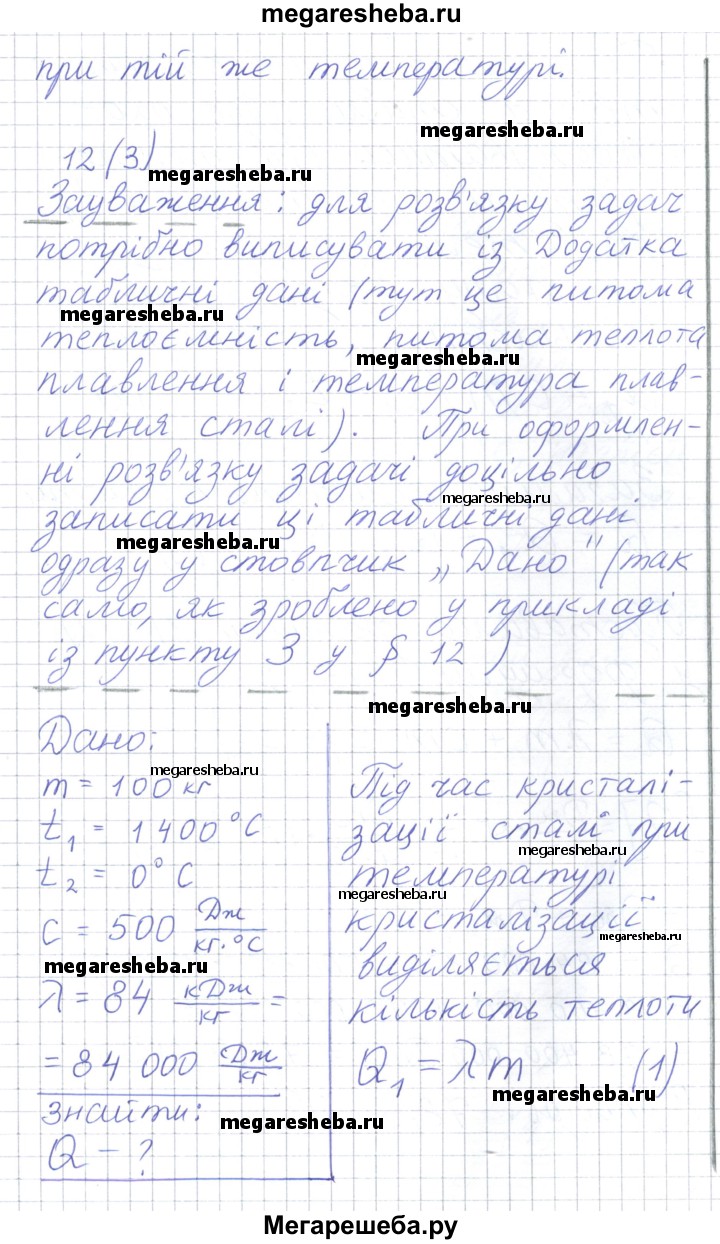 megaresheba.ru
при тій же температурі.
megaresheba.ru
12 (3)
megaresheba.ru
Зауваження: для розв'язку задач
потрібно виписувати із Додатка
табличні дані (тут це питома
megaresheba.ru
теплоємність, питома теплота
megaresheba.ru
плавлення і температура плав-
лення сталі). При оформлен-
ні розв'язку задачі доцільно
megaresheba.ru
записати ці табличні дані
megaresheba.ru
одразу у стовпчик „Дано" (так
само, як зроблено у прикладі
із пункту 3 у § 12 )
megaresheba.ru
Дано:
megaresheba.ru
m = 100 кг
t₁ = 1400 °C
t₂ = 0° C
c = 500 Дж/кг·°C
megaresheba.ru
λ = 84 кДж/кг =
= 84 000 Дж/кг
знайти:
megaresheba.ru
Q – ?
Під час кристалі-
зації сталі при
megaresheba.ru
температурі
megaresheba.ru
кристалізації
megaresheba.ru
виділяється
кількість теплоти
Q₁ = λ m (1)
megaresheba.ru
Мегарешеба.ру